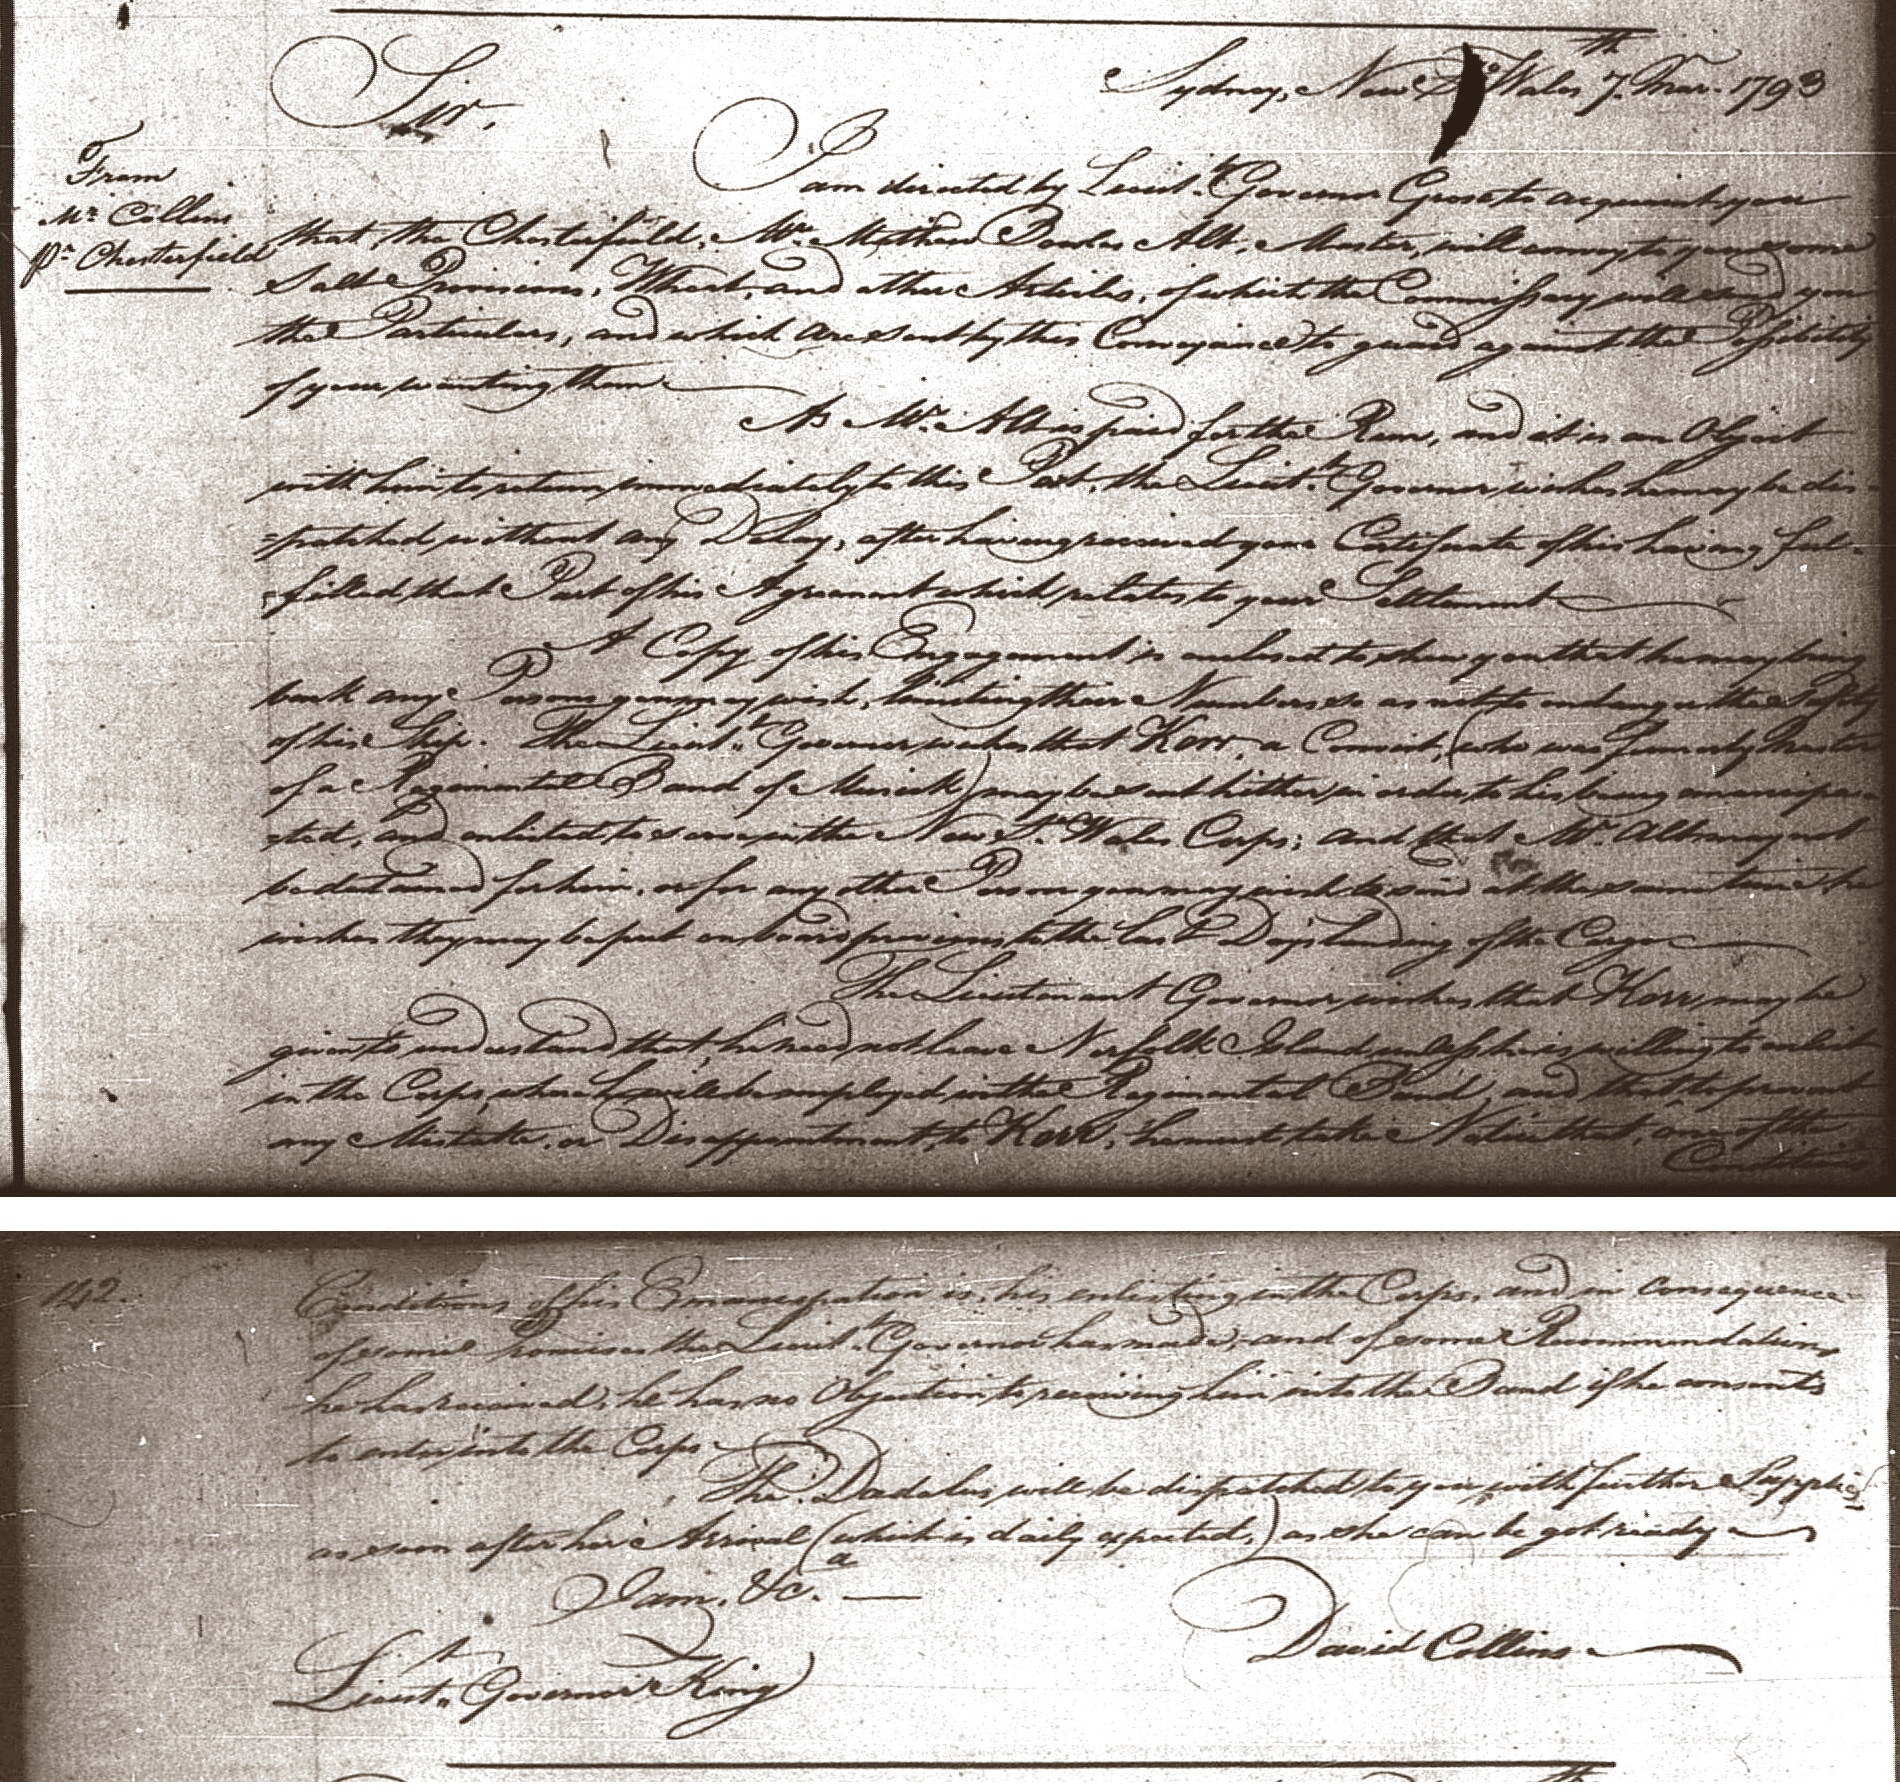 Sydney, New So. Wales 7th. Mar. 1793
Sir,
From
Mr. Collins
Pr. Chesterfield
I am directed by Lieut. Governor Grose to acquaint you
that the Chesterfield, Mr. Mathew Bowles Alt, Master, will convey to you some
Salt Provisions, Wheat, and other Articles, of which the Commissary will send you
the Particulars, and which are sent by this Conveyance to guard against the Possibility
of your wanting them
As Mr. Alt is paid for the Run, and it is an Object
with him to return immediately to this Port, the Lieut. Governor wishes he may be dis-
=patched without any Delay, after having received your Certificate of his having ful-
=filled that Part of his Agreement which relates to your Settlement
A Copy of his Engagement is enclosed to shew you that he may bring
back any Persons you may wish, limiting their Numbers so as not to endanger the Safety
of his Ship. The Lieut. Governor wishes that Kerr, a Convict, (who was formerly Master
of a Regimental Band of Musick) may be sent hither in order to his being emancipa-
=ted, and enlisted to serve in the New So. Wales Corps; and that Mr. Alt may not
be detained for him, or for any other Person you may wish to send at the same time he
wishes they may be put on board previous to the last Day's landing of the Cargo
The Lieutenant Governor wishes that Kerr, may be
given to understand that, he need not leave Norfolk Island unless he is willing to enlist
in the Corps, where he will be employed in the Regimental Band, and that, to prevent
any Mistake, or Disappointment, to Kerr, he must take Notice that, one of the
Conditions
142.
Conditions of his Emancipation is, his enlisting in the Corps, and in consequence
of some Promises the Lieut. Governor has made, and of some Recommendations
he has received, he has no Objection to receiving him into the Band if he consents
to enter into the Corps
The Dædalus will be dispatched to you with further Supplies
as soon after her Arrival (which is daily expected,) as she can be got ready
I am, &ca.
David Collins
Lieut. Governor King